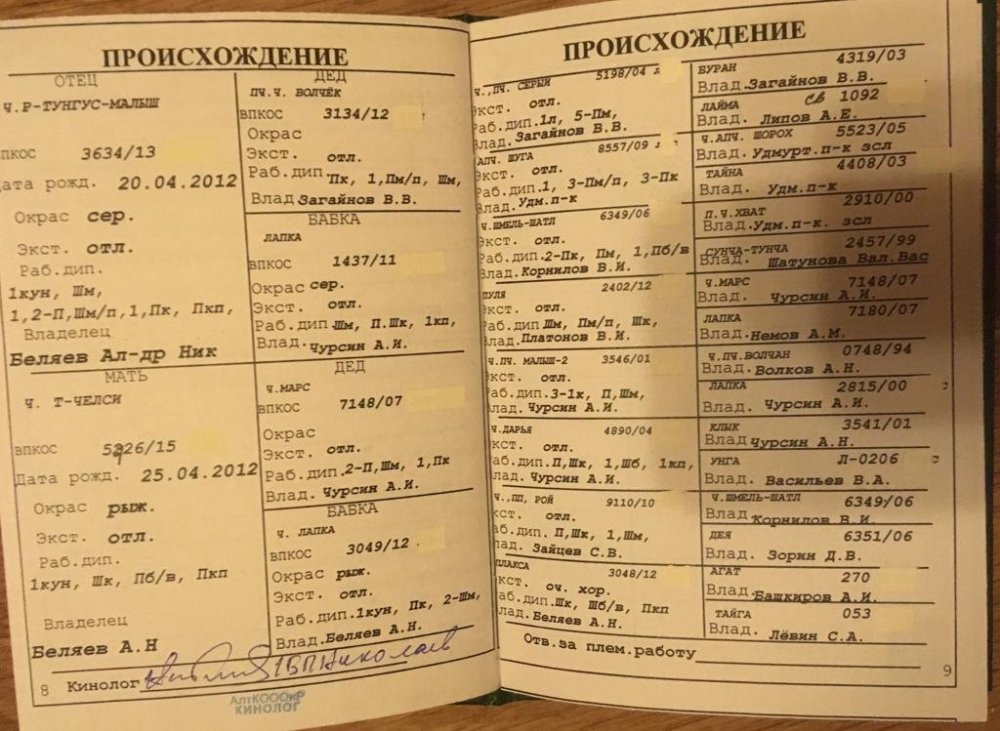 ПРОИСХОЖДЕНИЕ
ОТЕЦ
Ч.Р-ТУНГУС-МАЛЫШ
ПКОС 3634/13
ата рожд. 20.04.2012
Окрас сер.
Экст. отл.
Раб.дип.
1кун, Шм,
1,2-П,Шм/п,1,Пк, Пкп,
Владелец
Беляев Ал-др Ник
МАТЬ
Ч. Т-ЧЕЛСИ
ВПКОС 5226/15
Дата рожд. 25.04.2012
Окрас рыж.
Экст. отл.
Раб.дип.
1кун, Шк, Пб/в, Пкп
Владелец
Беляев А.Н
8 Кинолог
АлтКОООиР
КИНОЛОГ
ДЕД
ПЧ.Ч. ВОЛЧЁК
ВПКОС 3134/12
Окрас
Экст. отл.
Раб.дип.Пк, 1,Пм/п, Шм,
Влад.Загайнов В.В.
БАБКА
ЛАПКА
ВПКОС 1437/11
Окрас сер.
Экст. отл.
Раб.дип.Шм, П.Шк, 1кп,
Влад.Чурсин А.И.
ДЕД
Ч.МАРС
ВПКОС 7148/07
Окрас
Экст. отл.
Раб.дип.2-П,Шм, 1,Пк
Влад. Чурсин А.И.
БАБКА
Ч. ЛАПКА
ВПКОС 3049/12
Окрас рыж.
Экст. отл.
Раб.дип.1кун, Пк, 2-Шм,
Влад.Беляев А.Н.
ПРОИСХОЖДЕНИЕ
Ч.,ПЧ. СЕРЫЙ 5198/04
Экст. отл.
Раб.дип.1л, 5-Пм,
Влад.Загайнов В.В.
АПЧ. ШУГА 8557/09
Экст. отл.
Раб.дип.1, 3-Пм/п, 3-Пк
Влад.Удм.п-к
Ч.ШМЕЛЬ-ШАТЛ 6349/06
Экст. отл.
Раб.дип.2-Пк, Пм, 1,Пб/в
Влад.Корнилов В.И.
ПУЛЯ 2402/12
Экст. отл.
Раб.дип.Шм, Пм/п, Шк,
Влад.Платонов В.И.
Ч.ПЧ. МАЛЫШ-2 3546/01
кст. отл.
аб.дип.3-1к, П,Шм,
лад. Чурсин А.И.
Ч.ДАРЬЯ 4890/04
кст. отл.
аб.дип.П,Шк, 1,Шб, 1кп,
лад. Чурсин А.И.
Ч.,ПП, РОЙ 9110/10
кст. отл.
аб.дип. П,Шк, 1,Шм,
лад. Зайцев С.В.
ПЛАКСА 3048/12
Экст. оч. хор.
аб.дип.Шк, Шб/в, Пкп
Влад.Беляев А.Н.
БУРАН 4319/03
Влад.Загайнов В.В.
ЛАЙМА св 1092
Влад. Липов А.Е.
Ч.АПЧ. ШОРОХ 5523/05
Влад.Удмурт.п-к зсл
ТАЙНА 4408/03
Влад. Удм.п-к
П.Ч.ХВАТ 2910/00
Влад.Удм.п-к. зсл
СУНЧА-ТУНЧА 2457/99
Влад. Шатунова Вал.Вас
Ч.МАРС 7148/07
Влад. Чурсин А.И.
ЛАПКА 7180/07
Влад.Немов А.М.
Ч.ПЧ.ВОЛЧАН 0748/94
Влад.Волков А.Н.
ЛАПКА 2815/00
Влад. Чурсин А.И.
КЛЫК 3541/01
Влад Чурсин А.Н.
УНГА Л-0206
Влад. Васильев В.А.
Ч.ШМЕЛЬ-ШАТЛ 6349/06
Влад Корнилов В.И.
ДЕЯ 6351/06
Влад. Зорин Д.В.
АГАТ 270
Влад.Башкиров А.И.
ТАЙГА 053
Влад. Лёвин С.А.
Отв.за плем.работу
9